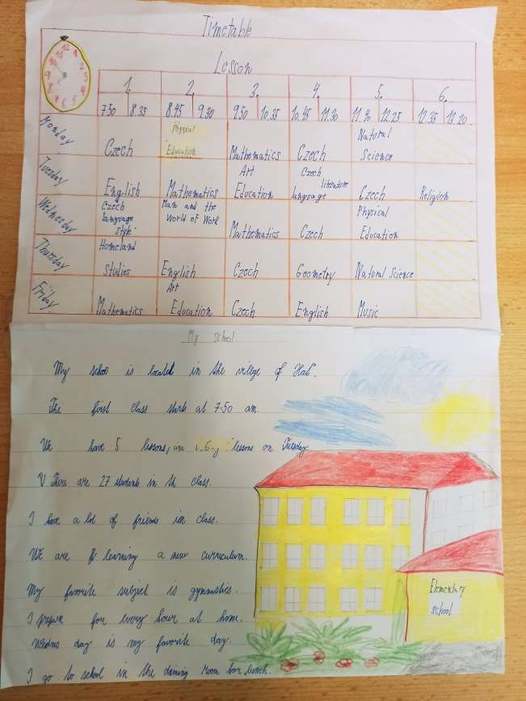 Timetable
Lesson
1. 2. 3. 4. 5. 6.
7.50 8.35 8.45 9.30 9.50 10.35 10.45 11.30 11.40 12.25 12.35 13.20
Monday Czech Physical Education Mathematics Czech Natural Science
Tuesday English Mathematics Art Education Czech literature language Czech Religion
Wednesday Czech language style Man and the World of Work Mathematics Czech Physical Education
Thursday Homeland Studies English Czech Geometry Natural Science
Friday Mathematics Art Education Czech English Music
My school
My school is located in the village of
The first class starts at 7.50 am.
We have 5 lessons, lessons on Tuesday
There are 27 students in the class.
I have a lot of friends in class.
We are learning a new curriculum.
My favorite subject is gymnastics.
I prepare for every hour at home.
day is my favorite day.
I go to school in the dining room for lunch.
Elementary
school